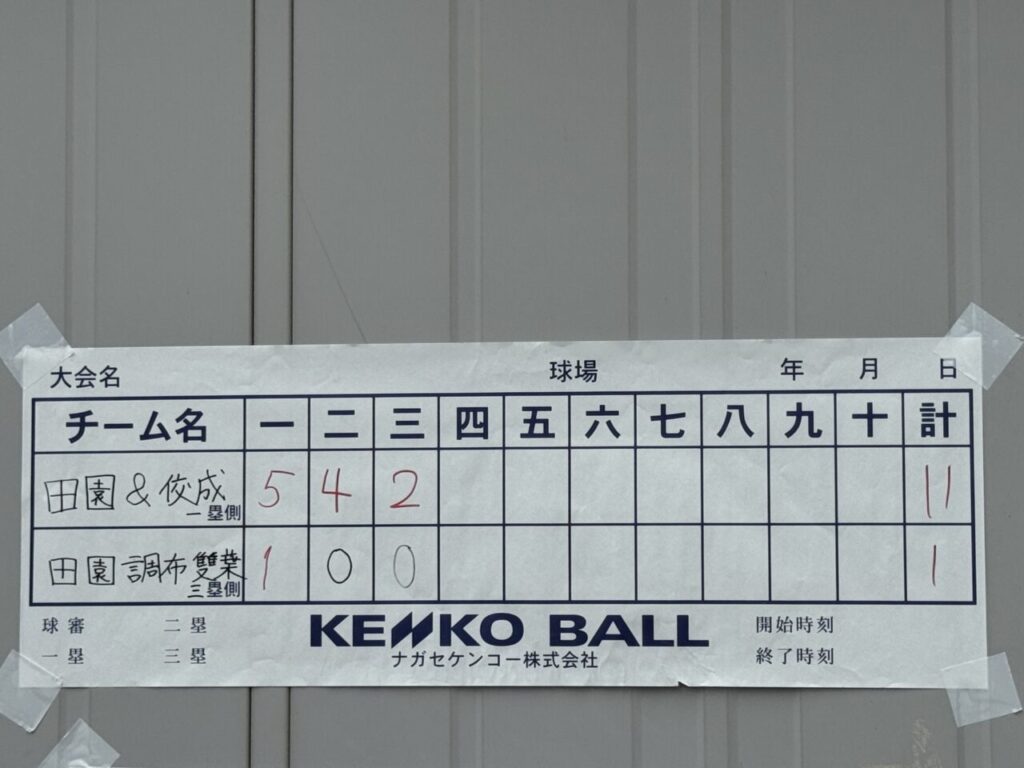 大会名 球場 年 月 日
チーム名 一 二 三 四 五 六 七 八 九 十 計
田園 & 佼成 一塁側 5 4 2 11
田園調布雙葉 三塁側 1 0 0 1
球審 二塁 KENKO BALL 開始時刻
一塁 三塁 ナガセケンコー株式会社 終了時刻